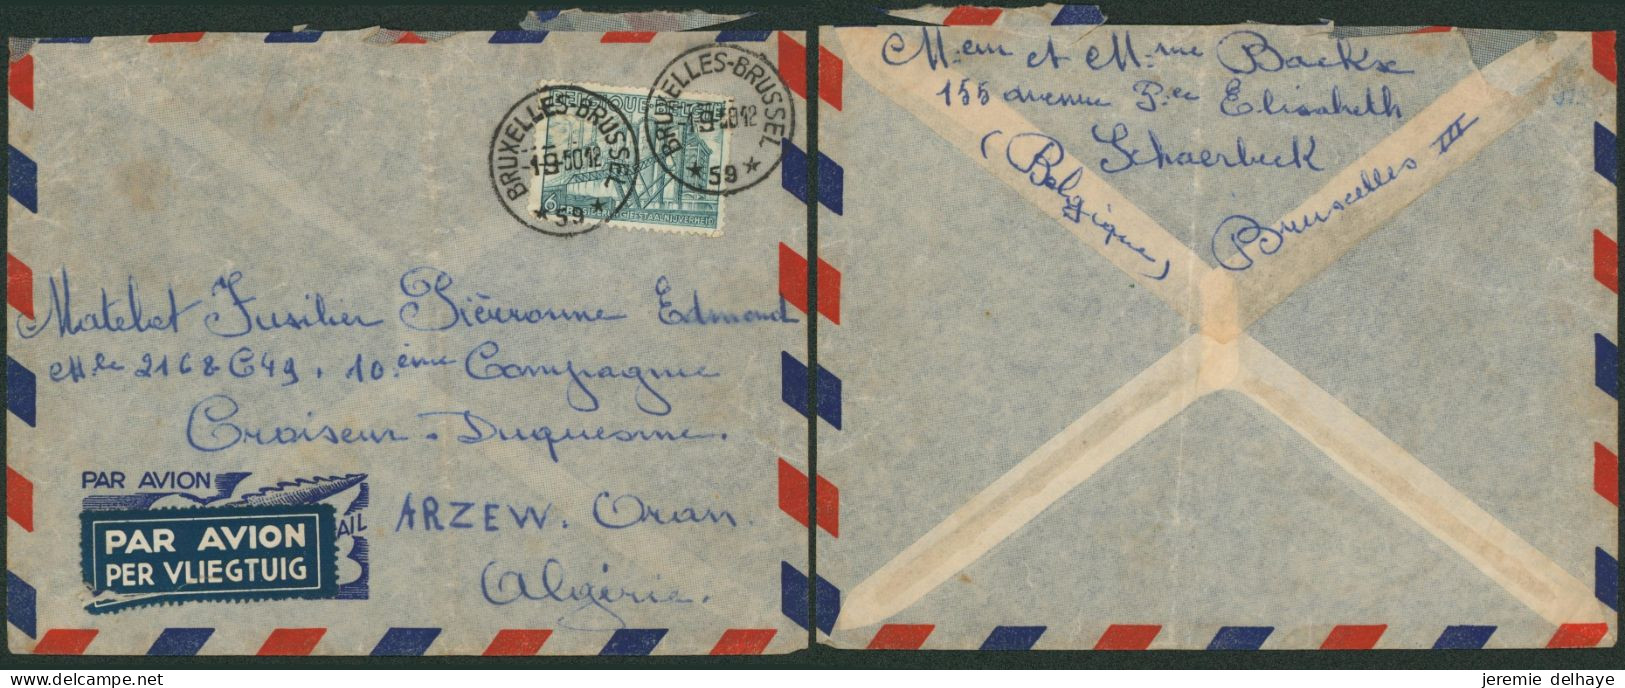 BRUXELLES-BRUSSEL
-1-9-50 12
★ 59 ★
BRUXELLES-BRUSSEL
-1-9-50 12
★ 59 ★
6
Matelot Fusilier Pièronne Edmond
Mle 2168 C49. 10.ème Compagnie
Croiseur-Duquesne.
ARZEW. Oran.
Algérie.
PAR AVION
AIL
PAR AVION
PER VLIEGTUIG
M.eur et M.me Backx
155 avenue P.ce Elisabeth
Schaerbeck
Bruxelles III
(Belgique)
jeremie delhaye